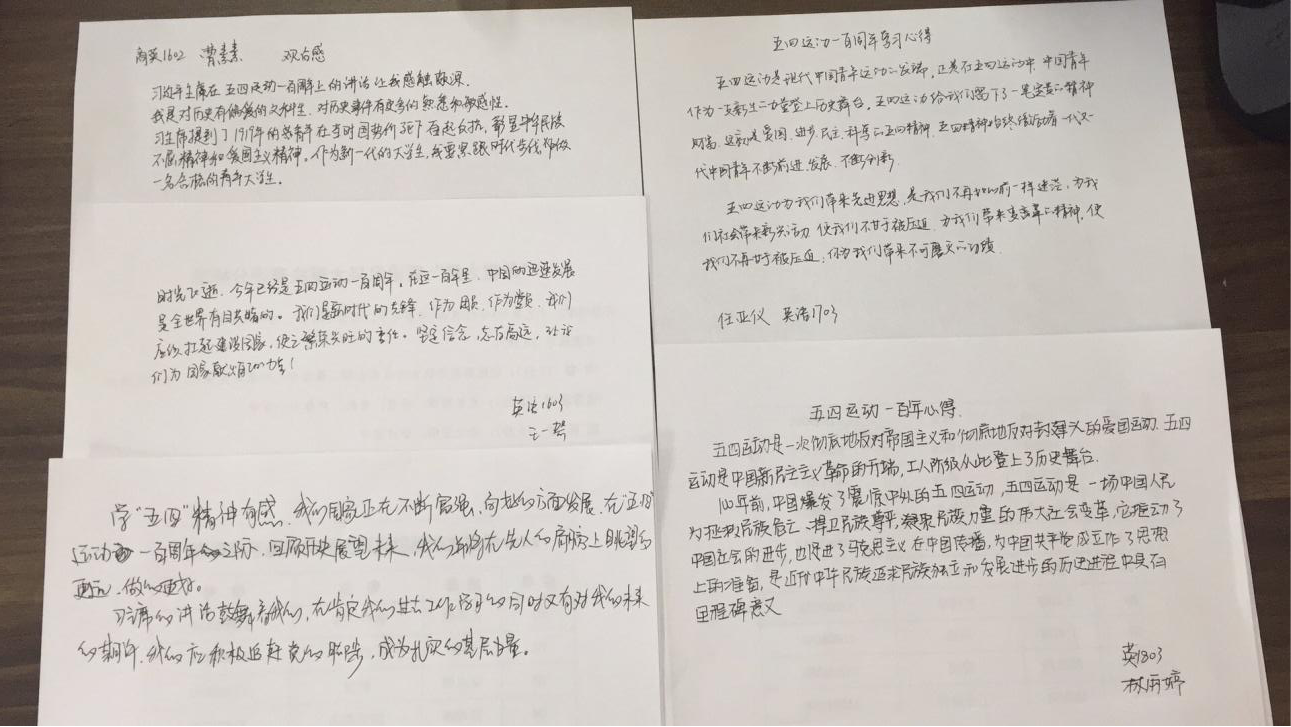 商英1602 曹素素 观后感
习近平主席在五四运动一百周年上的讲话让我感触颇深。
我是对历史有偏爱的文科生,对历史事件有更多的熟悉和敏感性。
习主席提到了1919年的爱国青年在当时国势危难下奋起反抗,彰显中华民族
不屈精神和爱国主义精神。作为新一代的大学生,我要紧跟时代步伐,做
一名合格的青年大学生。
时光飞逝,今年已经是五四运动一百周年。在这一百年里,中国的迅速发展
是全世界有目共睹的。我们是新时代的先锋,作为团员,作为党员,我们
应该扛起建设国家,使之繁荣兴旺的责任。坚定信念,志存高远,让我
们为国家献出
英语1603
王一琴
学“五四”精神有感,我们国家正在不断富强,向好的方面发展,在“五四”
运动一百周年之际,回顾历史展望未来,我们将在先人的肩膀上眺望的
更远,做的更好。
习主席的讲话鼓舞着我们,在肯定我们过去工作学习的同时又有对我们未来
的期许,我们应积极追赶党的脚步,成为扎实的基层力量。
五四运动一百周年学习心得
五四运动是现代中国青年运动的发端,正是在五四运动中,中国青年
作为一支新生的力量登上历史舞台,五四运动给我们留下了一笔宝贵的精神
财富,这就是爱国、进步、民主、科学的五四精神,五四精神始终激励着一代又一
代中国青年不断前进、发展、不断创新
五四运动为我们带来先进思想,是我们不再如以前一样迷茫,为我
们社会带来新兴活动,使我们不甘于被压迫,为我们带来变革的精神,使
我们不再甘于被压迫,你为我们带来不可磨灭的功绩
任亚仪 英语1703
五四运动一百年心得
五四运动是一次彻底地反对帝国主义和彻底地反对封建主义的爱国运动,五四
运动是中国新民主主义革命的开端,工人阶级从此登上了历史舞台.
100年前,中国爆发了震惊中外的五四运动,五四运动是一场中国人民
为拯救民族危亡、捍卫民族尊严、凝聚民族力量的伟大社会变革,它推动了
中国社会的进步,也促进了马克思主义在中国传播,为中国共产党成立作了思想
上的准备,是近代中华民族追求民族独立和发展进步的历史进程中具有
里程碑意义
英1803
林雨婷